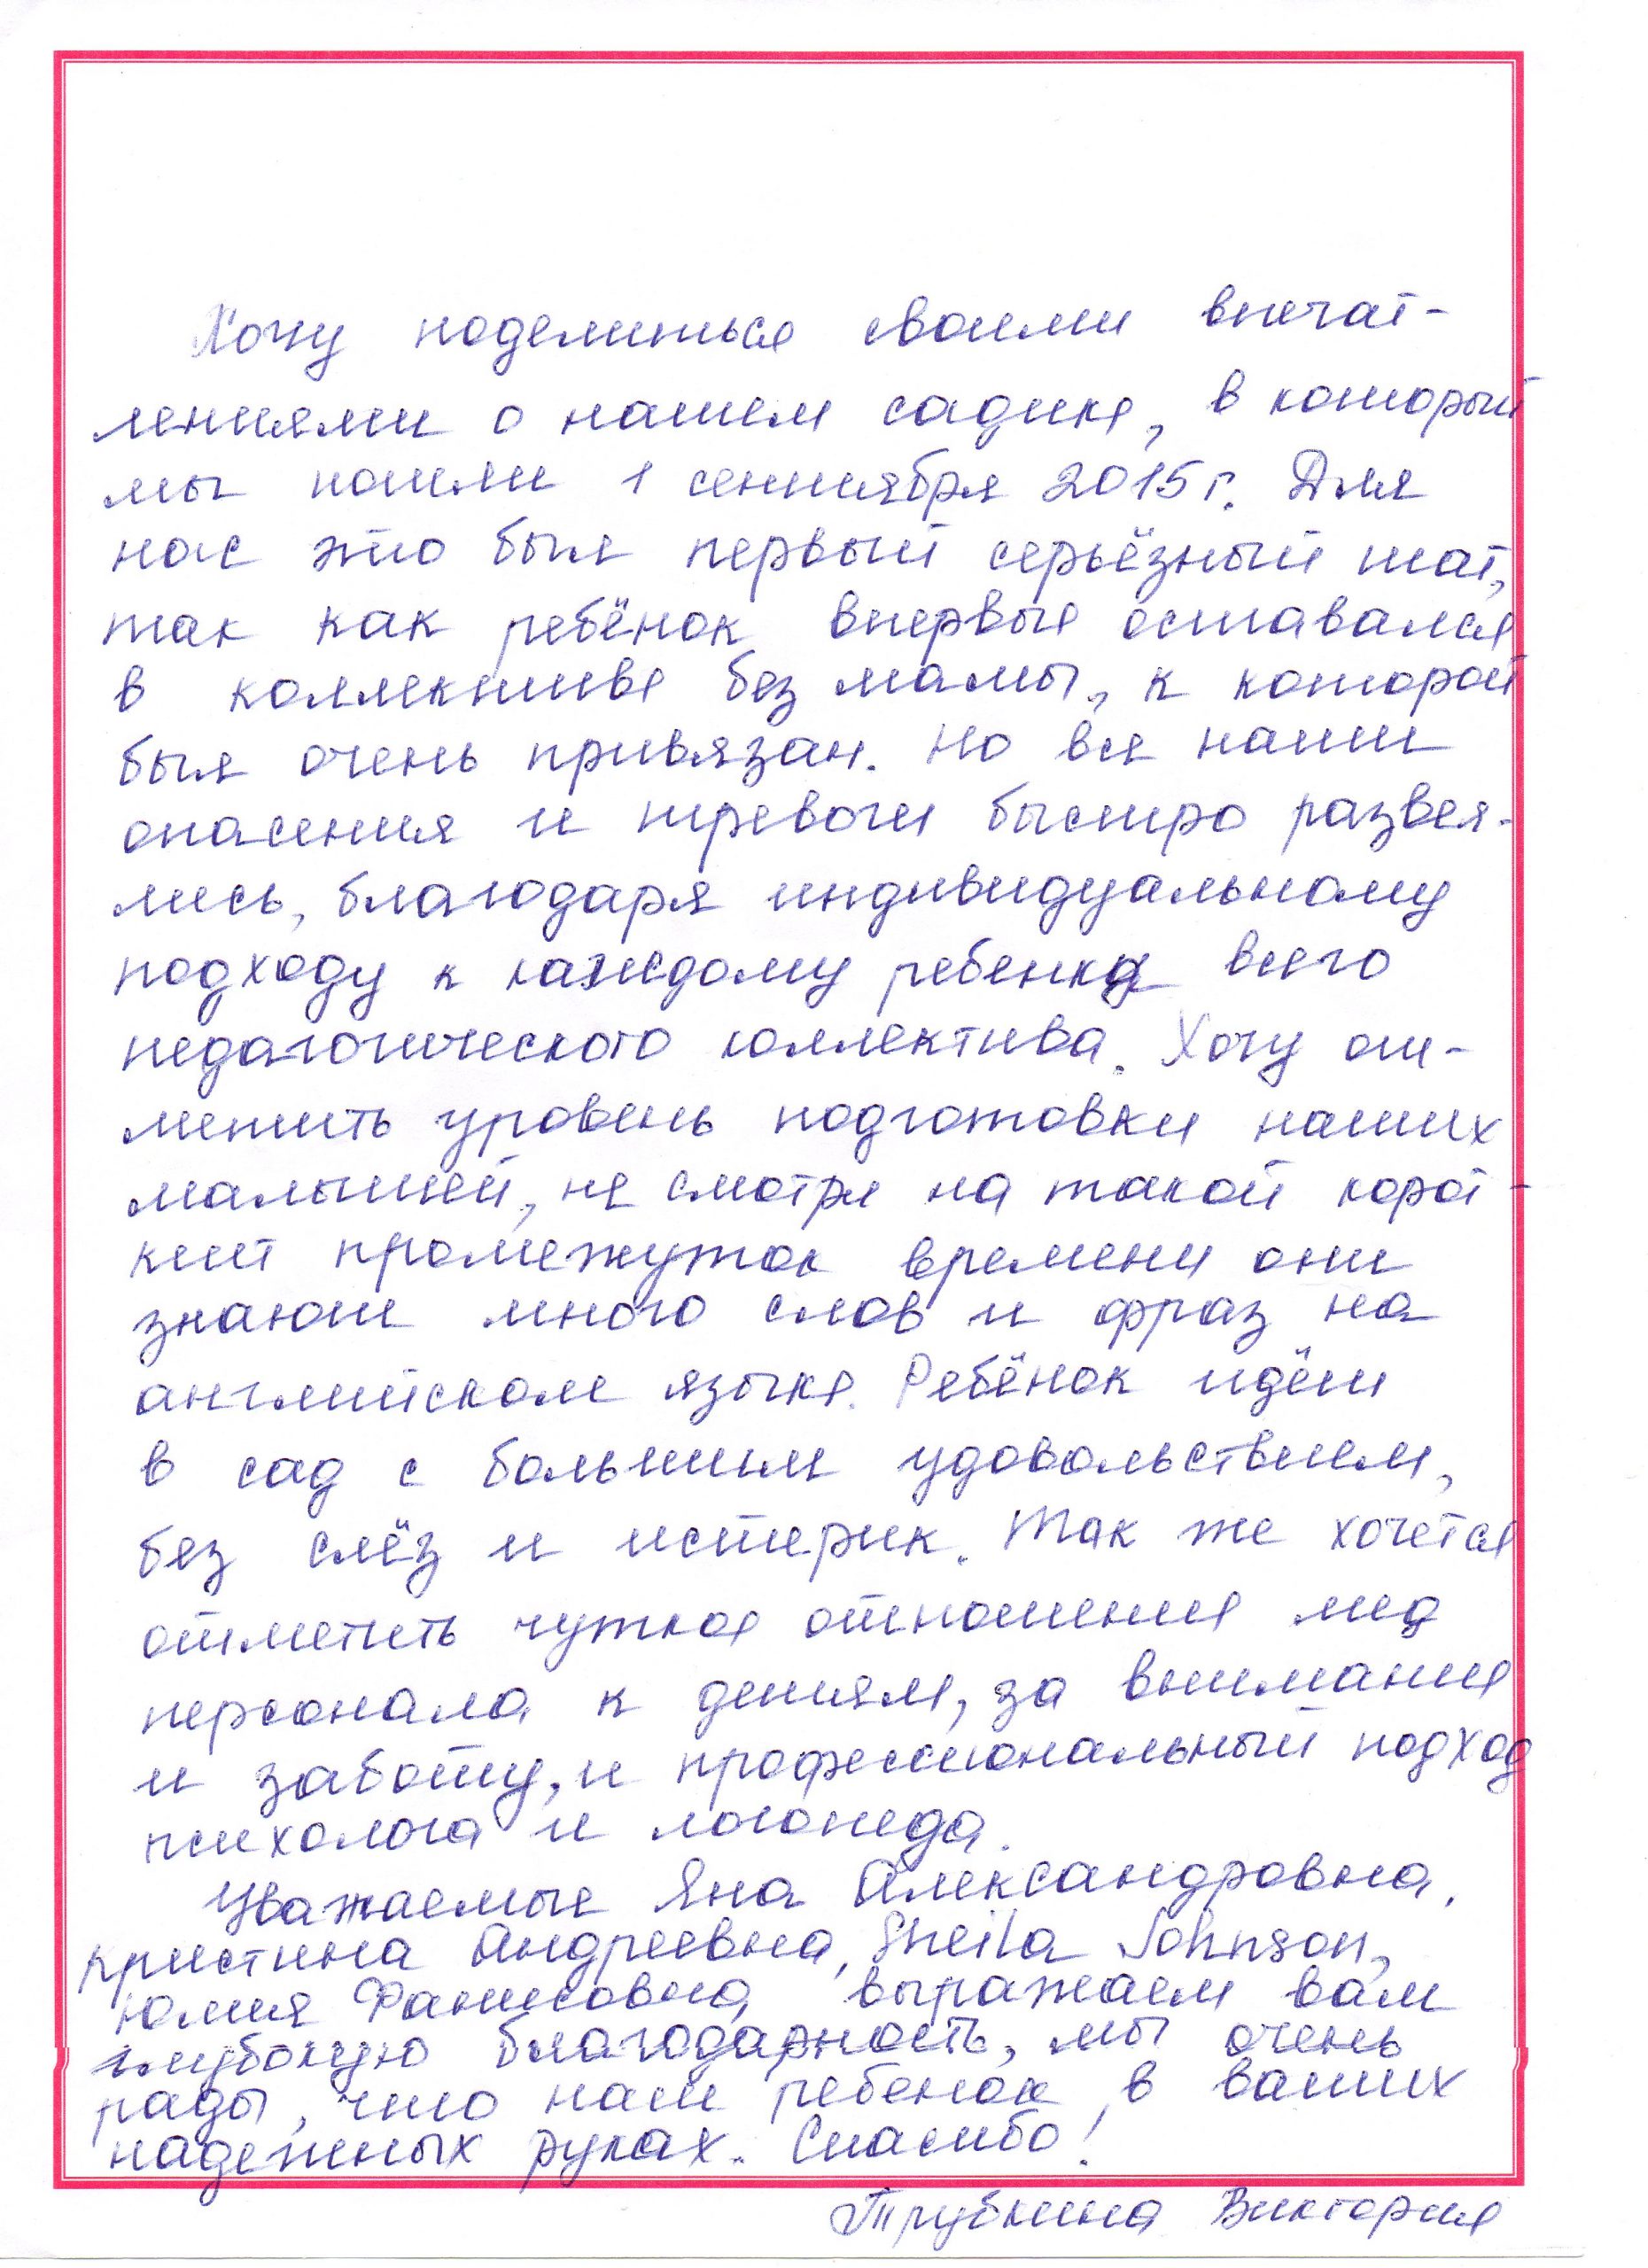 Хочу поделиться своими впечат-
лениями о нашем садике, в который
мы пошли 1 сентября 2015 г. Для
нас это был первый серьёзный шаг,
так как ребёнок впервые оставался
в коллективе без мамы, к которой
был очень привязан. Но все наши
опасения и тревоги быстро развея-
лись, благодаря индивидуальному
подходу к каждому ребенку всего
педагогического коллектива. Хочу от-
метить уровень подготовки наших
малышей, не смотря на такой корот-
кий промежуток времени они
знают много слов и фраз на
английском языке. Ребёнок идёт
в сад с большим удовольствием,
без слёз и истерик. Так же хочется
отметить чуткое отношение мед
персонала к детям, за внимание
и заботу, и профессиональный подход
психолога и логопеда.
Уважаемые Яна Александровна,
Кристина Андреевна, Sheila Johnson,
Юлия Фанисовна, выражаем вам
глубокую благодарность, мы очень
рады, что наш ребенок в ваших
надежных руках. Спасибо!
Трубкина Виктория